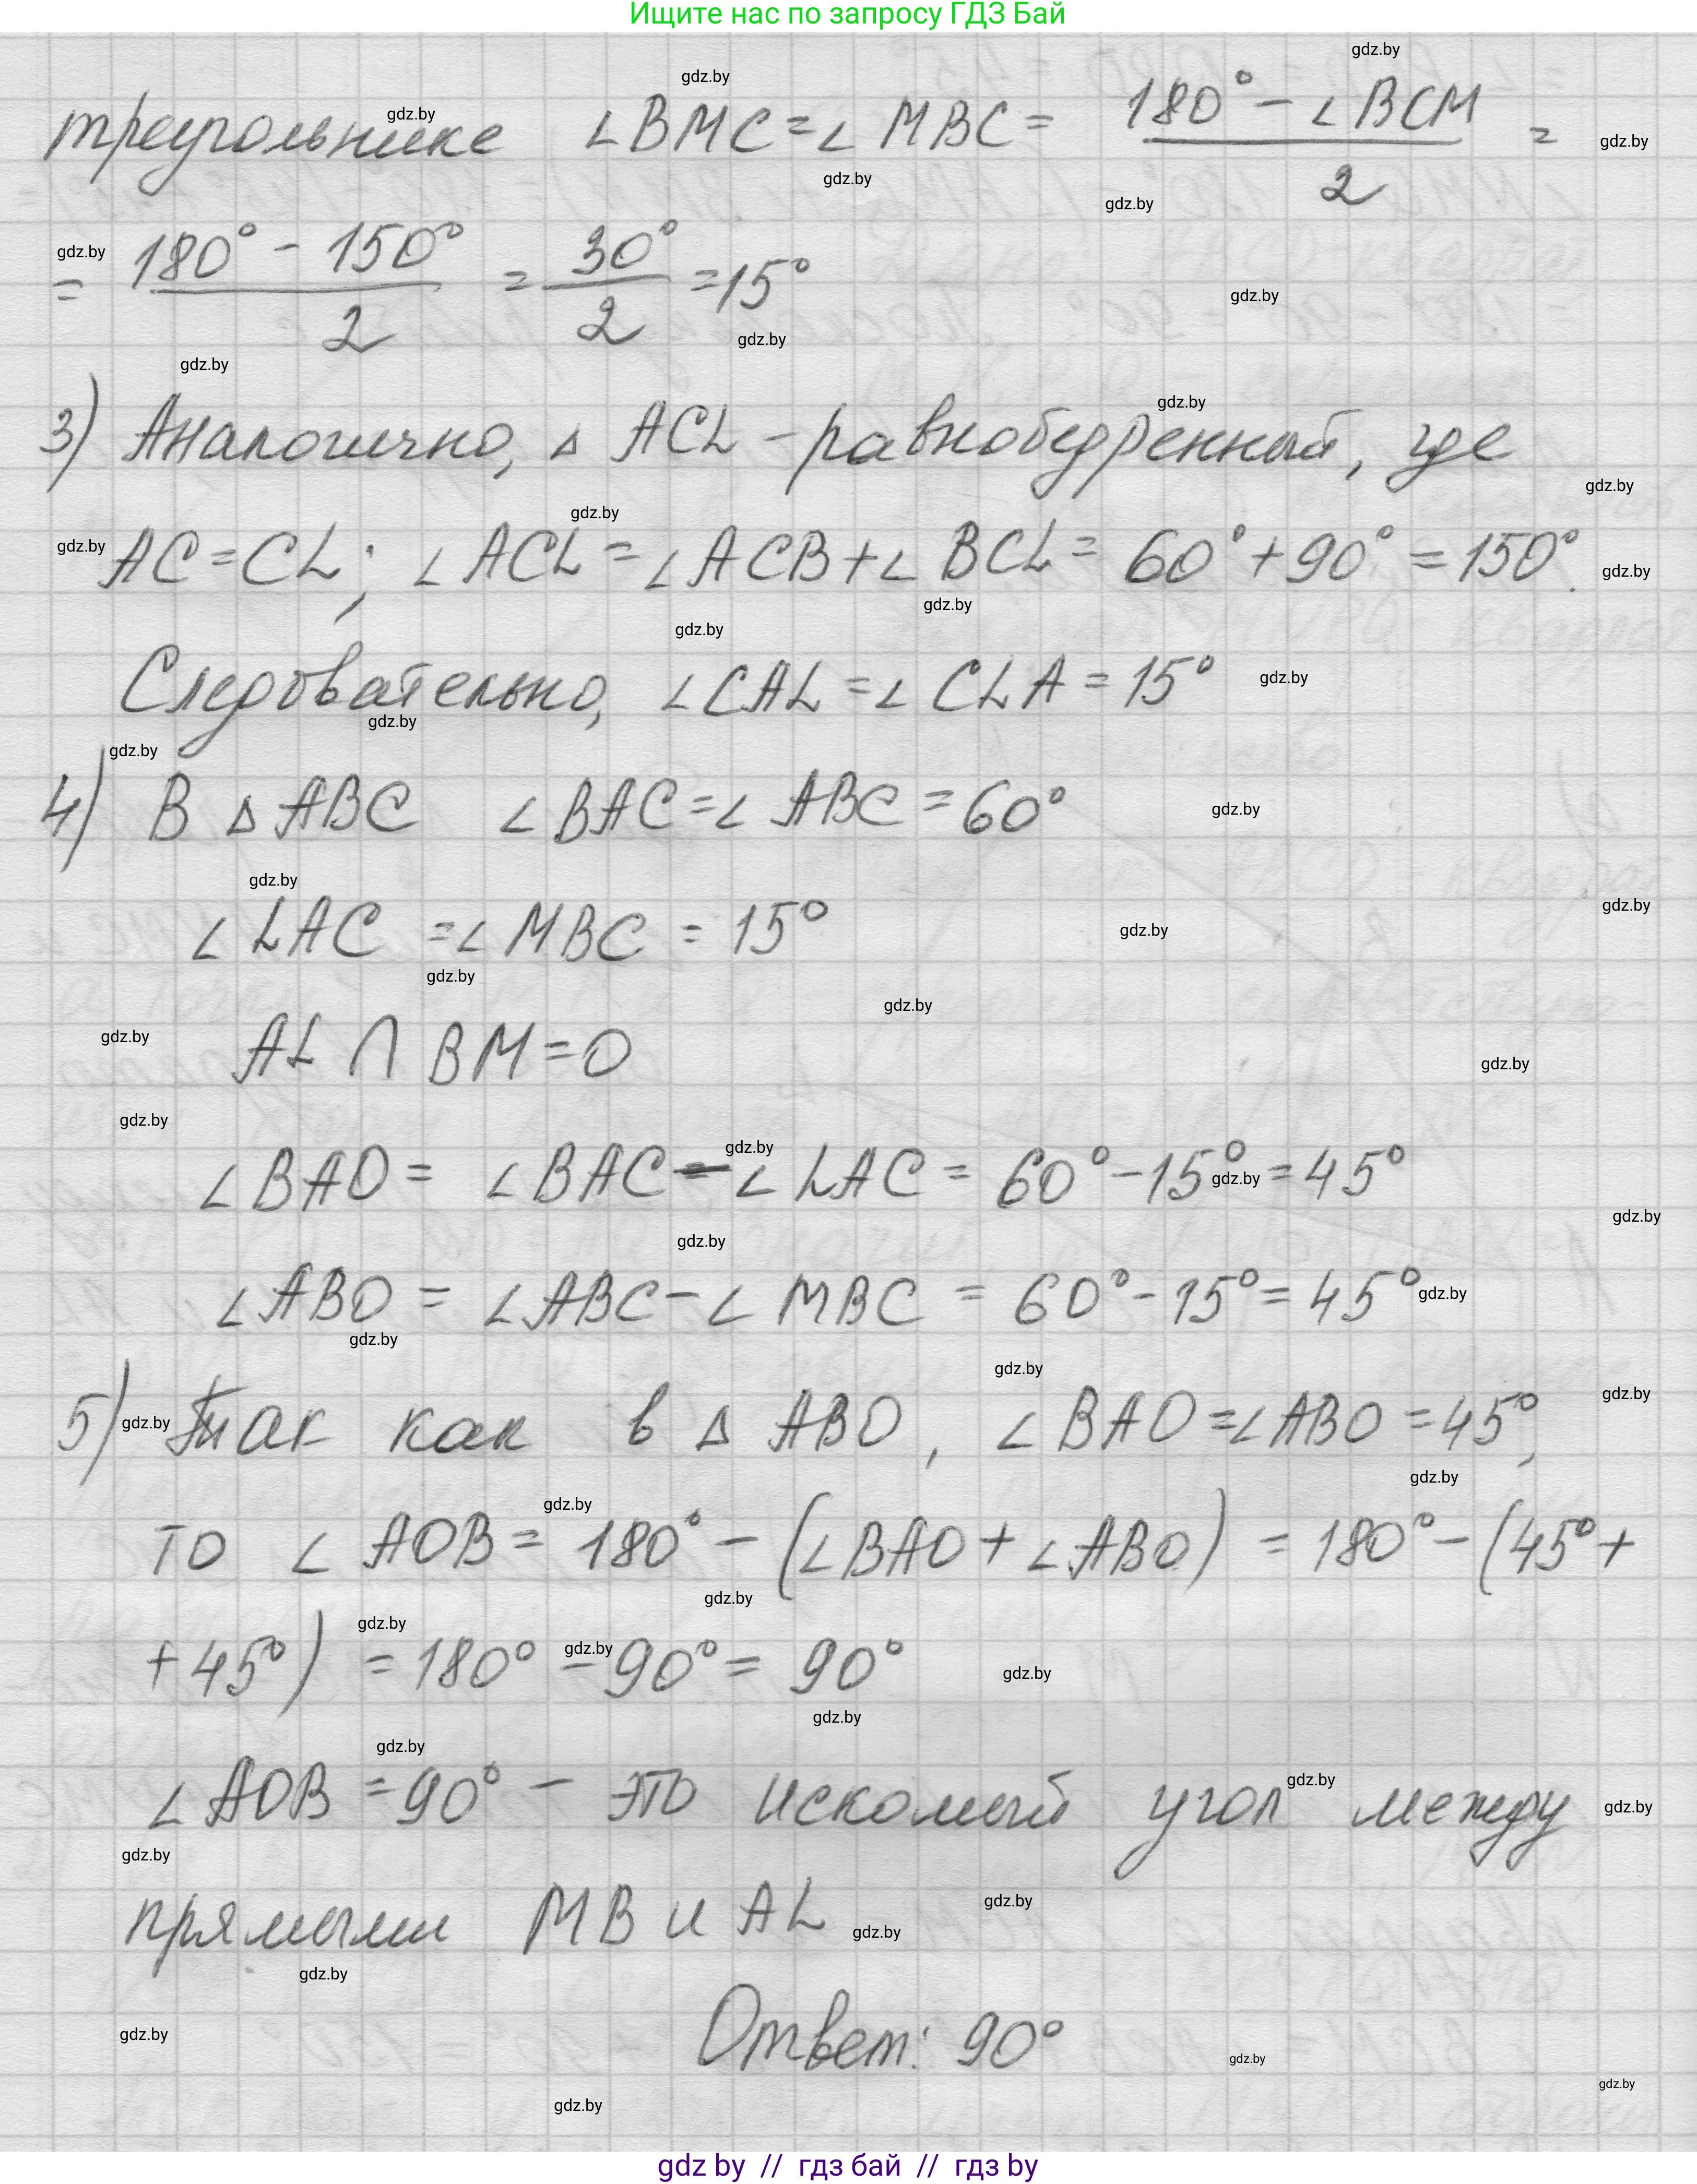 Ищите нас по запросу ГДЗ Бай
треугольнике ∠BMC = ∠MBC = (180° - ∠BCM)/2 =
= (180° - 150°)/2 = 30°/2 = 15°
3) Аналогично, △ ACL - равнобедренный, где
AC = CL; ∠ACL = ∠ACB + ∠BCL = 60° + 90° = 150°.
Следовательно, ∠CAL = ∠CLA = 15°
4) В △ABC ∠BAC = ∠ABC = 60°
∠LAC = ∠MBC = 15°
AL ∩ BM = O
∠BAO = ∠BAC - ∠LAC = 60° - 15° = 45°
∠ABO = ∠ABC - ∠MBC = 60° - 15° = 45°
5) Так как в △ ABO, ∠BAO = ∠ABO = 45°,
то ∠AOB = 180° - (∠BAO + ∠ABO) = 180° - (45° +
+ 45°) = 180° - 90° = 90°
∠AOB = 90° - это искомый угол между
прямыми MB и AL
Ответ: 90°
gdz by // гдз бай // гдз by